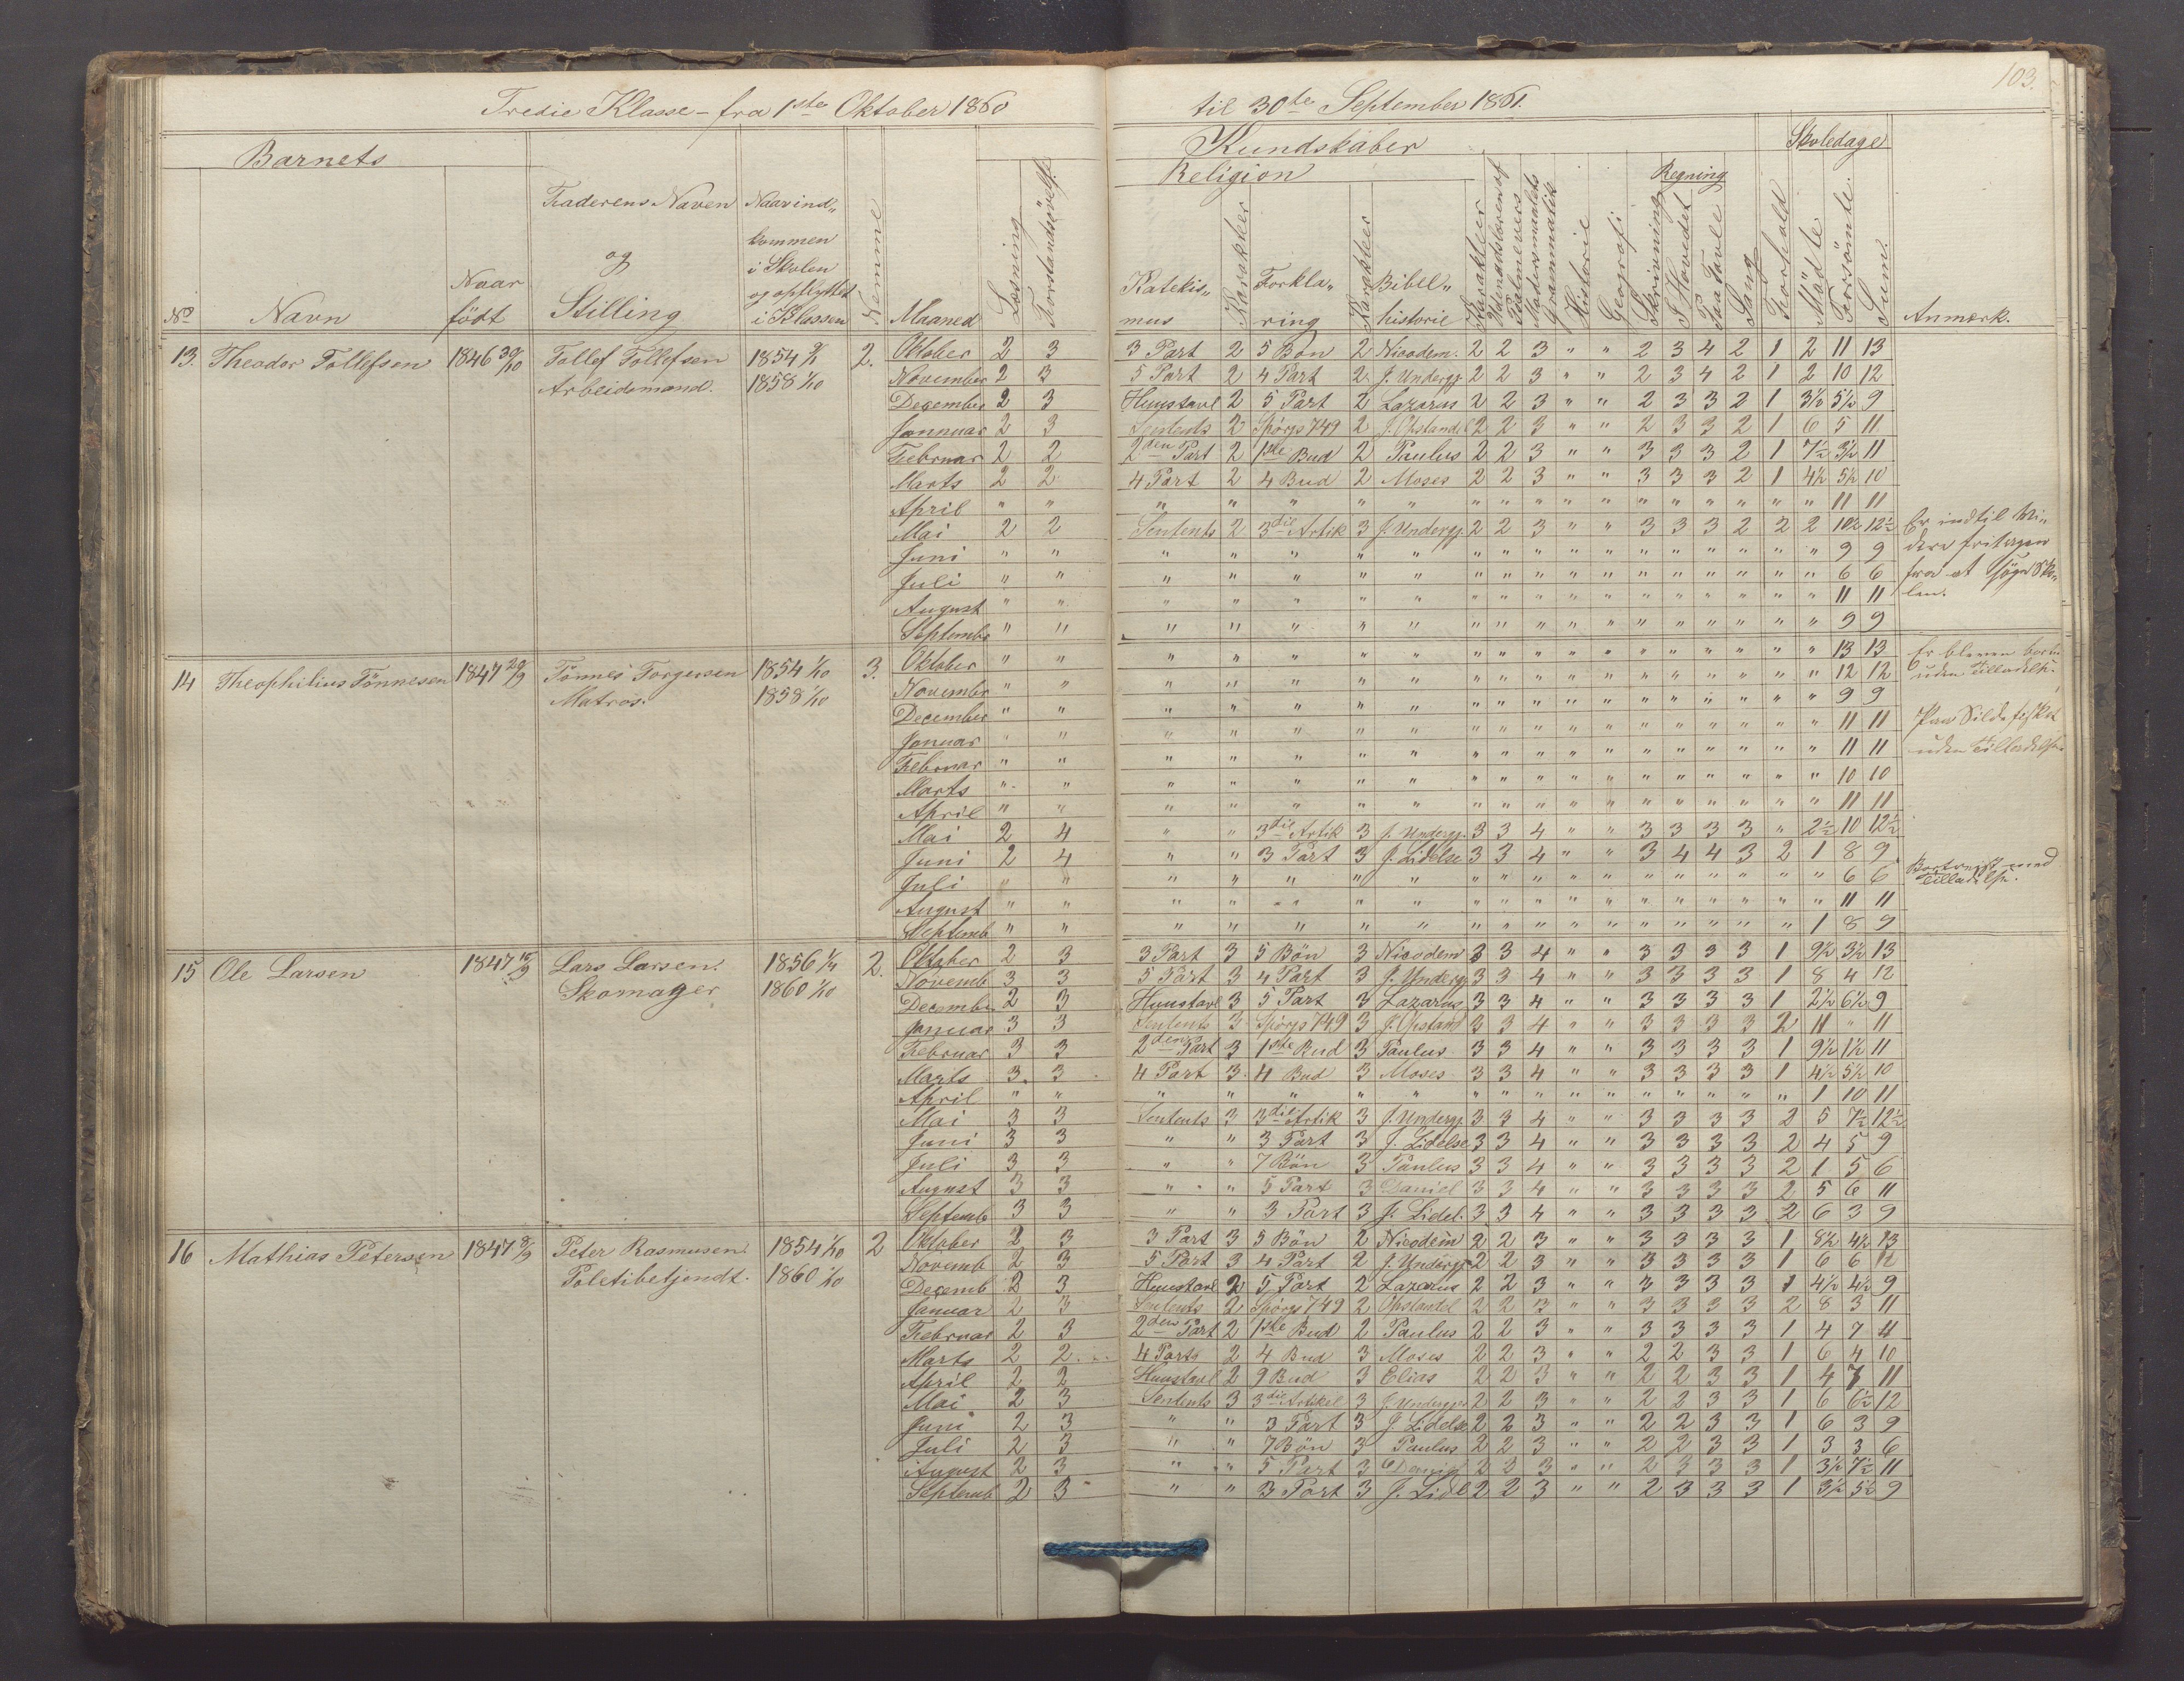 103.
Tredie Klasse - fra 1ste Oktober 1860 til 30te September 1861.
Barnets Kundskaber Skoledage
Religion Regning
No Navn Naar födt Faderens Navn og Stilling Naar ind„ kommen i Skolen og opflyttet i Klassen Nemme Maaned Læsning Forstandsövels. Katekis„ mus Karakteer Forkla„ ring Karakteer Bibel„ historie Karakteer Udenadslæren af Psalmevers Modersmaalets Grammatik Historie Geografi Skrivning I Hovedet Paa Tavle Sang Forhold Mödte Forsömte Sum. Anmærk.
13. Theodor Tollefsen 1846 30/10 Tollef Tollefsen 1854 2. Oktober 2 3 3 Part 2 5 Bön 2 Nicodem. 2 2 3 „ „ 2 3 4 2 1 2 11 13
Arbeidsmand. 1858 1/10 November 2 3 5 Part 2 4 Part 2 J. Undergj. 2 2 3 „ „ 2 3 4 2 1 2 10 12
December 2 3 Huustavl 2 5 Part 2 Lazarus 2 2 3 „ „ 2 3 3 2 1 3½ 5½ 9
Januar 2 3 Sentents 2 Spörgs 749 2 J. Opstandel 2 2 3 „ „ 2 3 3 2 1 6 5 11
Februar 2 2 2den Part 2 1ste Bud 2 Paulus 2 2 3 „ „ 3 3 3 2 1 7½ 3½ 11
Marts 2 2 4 Part 2 4 Bud 2 Moses 2 2 3 „ „ 3 3 3 2 1 4½ 5½ 10
April „ „ „ „ „ „ „ „ „ „ „ „ „ „ „ „ „ „ 11 11
Mai 2 2 Sentents 2 3die Artik 3 J. Undergj. 2 2 3 „ „ 3 3 3 2 2 2 10½ 12½ Er indtil Vin
Juni „ „ „ „ „ „ „ „ „ „ „ „ „ „ „ „ „ „ 9 9 dere fritagen
Juli „ „ „ „ „ „ „ „ „ „ „ „ „ „ „ „ „ „ 6 6 fra at söge Sko„
August „ „ „ „ „ „ „ „ „ „ „ „ „ „ „ „ „ „ 11 11 len.
Septembr „ „ „ „ „ „ „ „ „ „ „ „ „ „ „ „ „ „ 9 9
14 Theophilius Tönnesen 1847 29/9 Tönnes Torgersen 1854 1/10 3. Oktober „ „ „ „ „ „ „ „ „ „ „ „ „ „ „ „ „ „ 13 13 Er bleven
Matros. 1858 1/10 Novembr „ „ „ „ „ „ „ „ „ „ „ „ „ „ „ „ „ „ 12 12 uden Tilladelse.
December „ „ „ „ „ „ „ „ „ „ „ „ „ „ „ „ „ „ 9 9
Januar „ „ „ „ „ „ „ „ „ „ „ „ „ „ „ „ „ „ 11 11 Paa Sildefisket
Februar „ „ „ „ „ „ „ „ „ „ „ „ „ „ „ „ „ „ 11 11 uden Tilladelse.
Marts „ „ „ „ „ „ „ „ „ „ „ „ „ „ „ „ „ „ 10 10
April „ „ „ „ „ „ „ „ „ „ „ „ „ „ „ „ „ „ 11 11
Mai 2 4 „ „ 3die Artik 3 J. Undergj. 3 3 4 „ „ 3 3 3 3 „ 2½ 10 12½
Juni 2 4 „ „ 3 Part 3 J. Lidelse 3 3 4 „ „ 3 4 4 3 2 1 8 9
Juli „ „ „ „ „ „ „ „ „ „ „ „ „ „ „ „ „ „ 6 6 Bortreist med Tilladelse.
August „ „ „ „ „ „ „ „ „ „ „ „ „ „ „ „ „ „ 11 11
Septemb „ „ „ „ „ „ „ „ „ „ „ „ „ „ „ „ „ 1 8 9
15 Ole Larsen 1847 15/9 Lars Larsen. 1856 1/4 2. Oktober 2 3 3 Part 3 5 Bön 3 Nicodem 3 3 4 „ „ 3 3 3 3 1 9½ 3½ 13
Skomager 1860 1/10 Novemb 3 3 5 Part 3 4 Part 3 J. Undergj 3 3 4 „ „ 3 3 3 3 1 8 4 12
December 2 3 Huustavl 3 5 Part 3 Lazarus 3 3 4 „ „ 3 3 3 3 1 2½ 6½ 9
Januar 3 3 Sentents 3 Spörgs 749 3 J. Opstand 3 3 4 „ „ 3 3 3 3 2 11 „ 11
Februar 3 3 2den Part 3 1ste Bud 3 Paulus 3 3 4 „ „ 3 3 3 3 1 9½ 1½ 11
Marts 3 3 4 Part 3 4 Bud 3 Moses 3 3 4 „ „ 3 3 3 3 1 4½ 5½ 10
April „ „ „ „ „ „ „ „ „ „ „ „ „ „ „ „ „ 1 10 11
Mai 3 3 Sentents 3 3die Artik 3 J. Undergj 3 3 4 „ „ 3 3 3 3 2 5 7½ 12½
Juni 3 3 „ „ 3 Part 3 J. Lidelse 3 3 4 „ „ 3 3 3 3 2 4 5 9
Juli 3 3 „ „ 7 Bön 3 Paulus 3 3 4 „ „ 3 3 3 3 2 1 5 6
August 3 3 „ „ 5 Part 3 Daniel 3 3 4 „ „ 3 3 3 3 2 5 6 11
Septemb 3 3 „ „ 3 Part 3 J. Lidel. 3 3 4 „ „ 3 3 3 3 2 6 3 9
16 Mathias Petersen 1847 8/9 Peter Rasmusen. 1854 1/10 2 Oktober 2 3 3 Part 3 5 Bön 2 Nicodem 2 2 3 „ „ 3 3 3 3 1 8½ 4½ 13
Poletibetjendt. 1860 1/10 Novemb 2 3 5 Part 3 4 Part 2 J. Undergj 2 2 3 „ „ 3 3 3 3 1 6 6 12
Decemb 2 3 Huustavl 2 5 Part 2 Lazarus 2 2 3 „ „ 3 3 3 3 1 4½ 4½ 9
Januar 2 3 Sentents 2 Spörgs 749 2 Opstandel 2 2 3 „ „ 3 3 3 3 2 8 3 11
Februar 2 3 2den Part 2 1ste Bud 2 Paulus 2 2 3 „ „ 3 3 3 3 1 4 7 11
Marts 2 2 4 Part 2 4 Bud 3 Moses 2 2 3 „ „ 2 2 3 3 1 6 4 10
April 2 2 Huustavl 2 9 Bud 3 Elias 2 2 3 „ „ 2 2 3 3 1 4 7 11
Mai 2 3 Sentents 3 3die Artikel 3 J. Undergj. 2 2 3 „ „ 2 2 3 3 1 6 6½ 12
Juni 2 3 „ „ 3 Part 3 J. Lidelse 2 2 3 „ „ 2 2 3 3 1 6 3 9
Juli 2 3 „ „ 7 Bön 3 Paulus 2 2 3 „ „ 2 2 3 3 1 3 3 6
August 2 3 „ „ 5 Part 3 Daniel 2 2 3 „ „ 2 3 3 3 1 3½ 7½ 11
Septemb 2 3 „ „ 3 Part 3 J. Lidl 2 2 3 „ „ 2 3 3 3 1 3½ 5½ 9